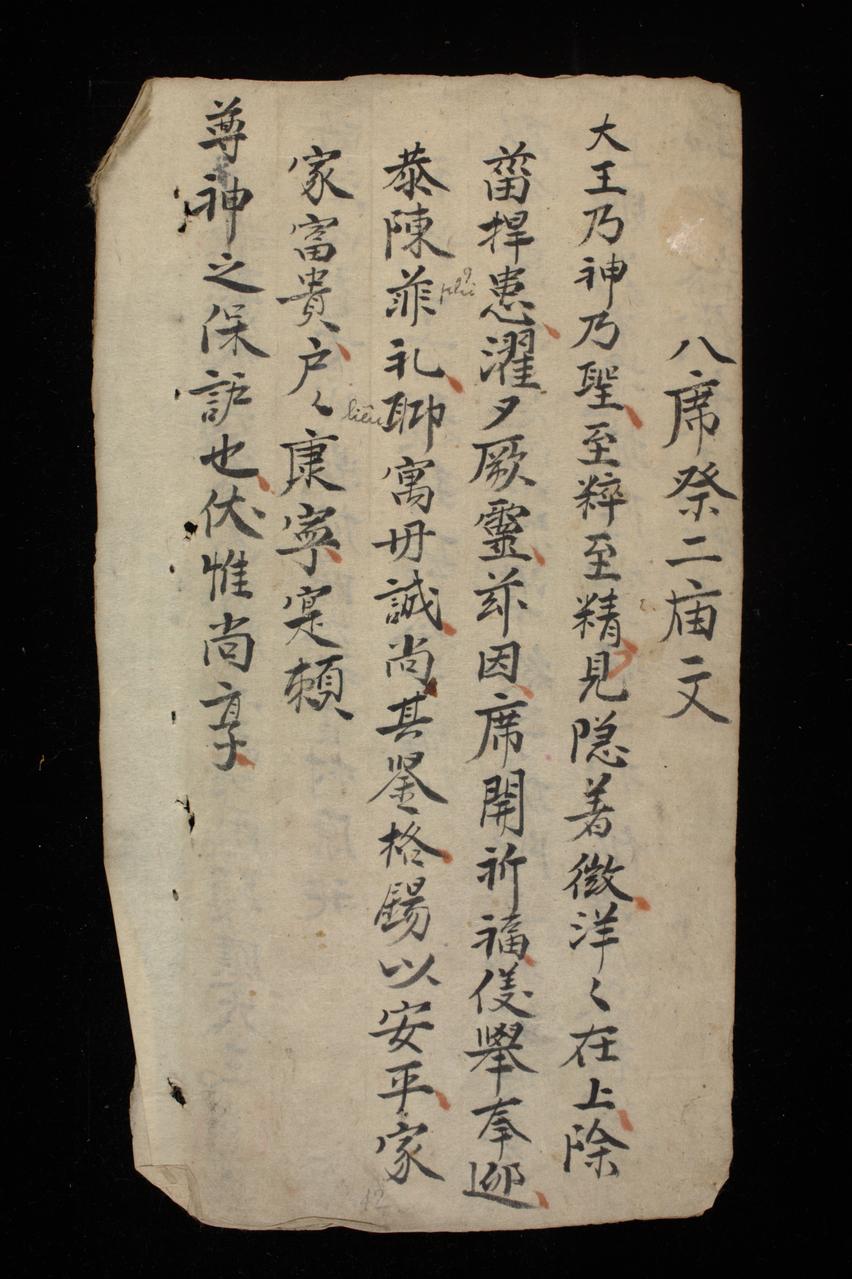 八席祭二庙文
大王乃神乃聖至粹至精見隐着微洋〻在上除
菑捍患濯夕厥靈茲因席開祈福儀舉奉迎
恭陳菲礼聊寓丹誠尚其鉴格錫以安平家
家富貴户〻康寧寔頼
尊神之保訴也伏惟尚享
phỉ
liêu
12